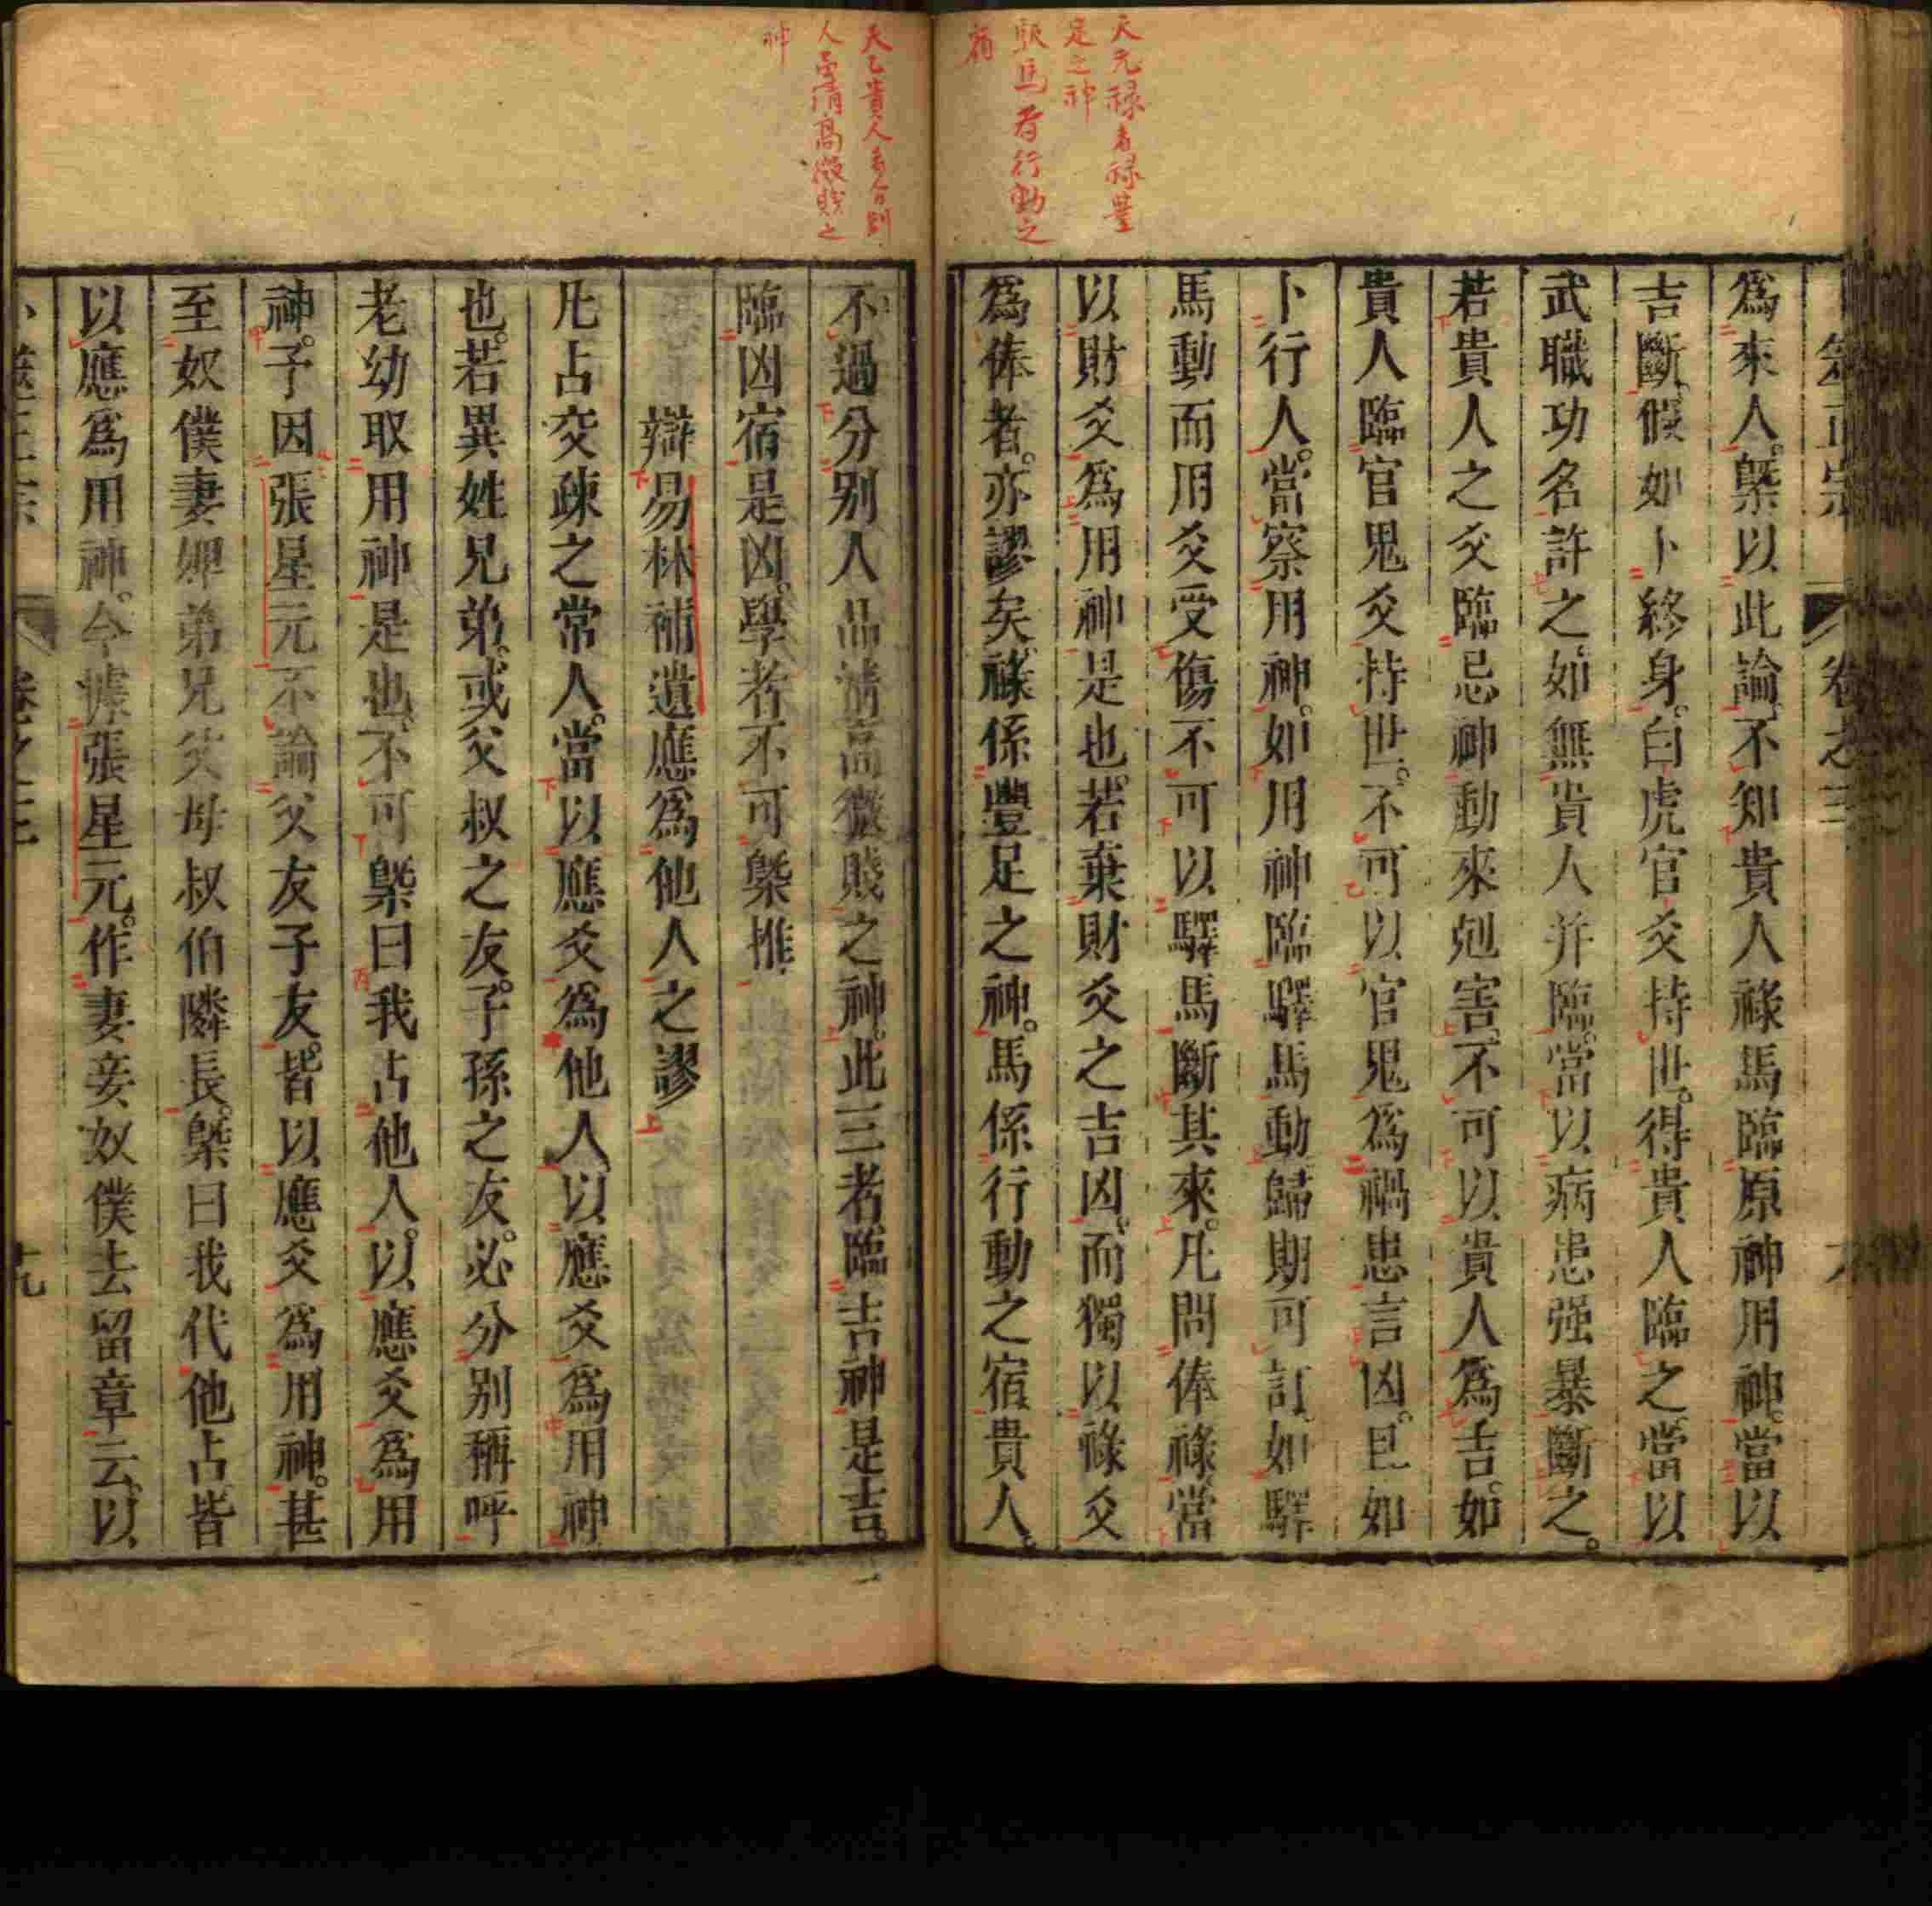 天元禄者禄豊
足之神
駅馬者行動之
宿
爲來人槩以此論不知貴人祿馬臨原神用神當以
吉斷假如卜終身白虎官爻持世得貴人臨之當以
武職功名許之如無貴人并臨當以病患强暴斷之
若貴人之爻臨忌神動來剋害不可以貴人爲吉如
貴人臨官鬼爻持世不可以官鬼爲禍患言凶且如
卜行人當察用神如用神臨驛馬動歸期可訂如驛
馬動而用爻受傷不可以驛馬斷其來凡問俸祿當
以財爻爲用神是也若棄財爻之吉凶而獨以祿爻
爲俸者亦謬矣祿係豐足之神馬係行動之宿貴人
天乙貴人者分別
人品清高微賎之
神
不過分别人品清高微賤之神此三者臨吉神是吉
臨凶宿是凶學者不可槩推
辯易林補遺應爲他人之謬
凡占交疎之常人當以應爻爲他人以應爻爲用神
也若異姓兄弟或父叔之友子孫之友必分别稱呼
老幼取用神是也不可槩曰我占他人以應爻爲用
神子因張星元不論父友子友皆以應爻爲用神甚
至奴僕妻婢弟兄父母叔伯隣長槩曰我代他占皆
以應爲用神今據張星元作妻妾奴僕去留章云以